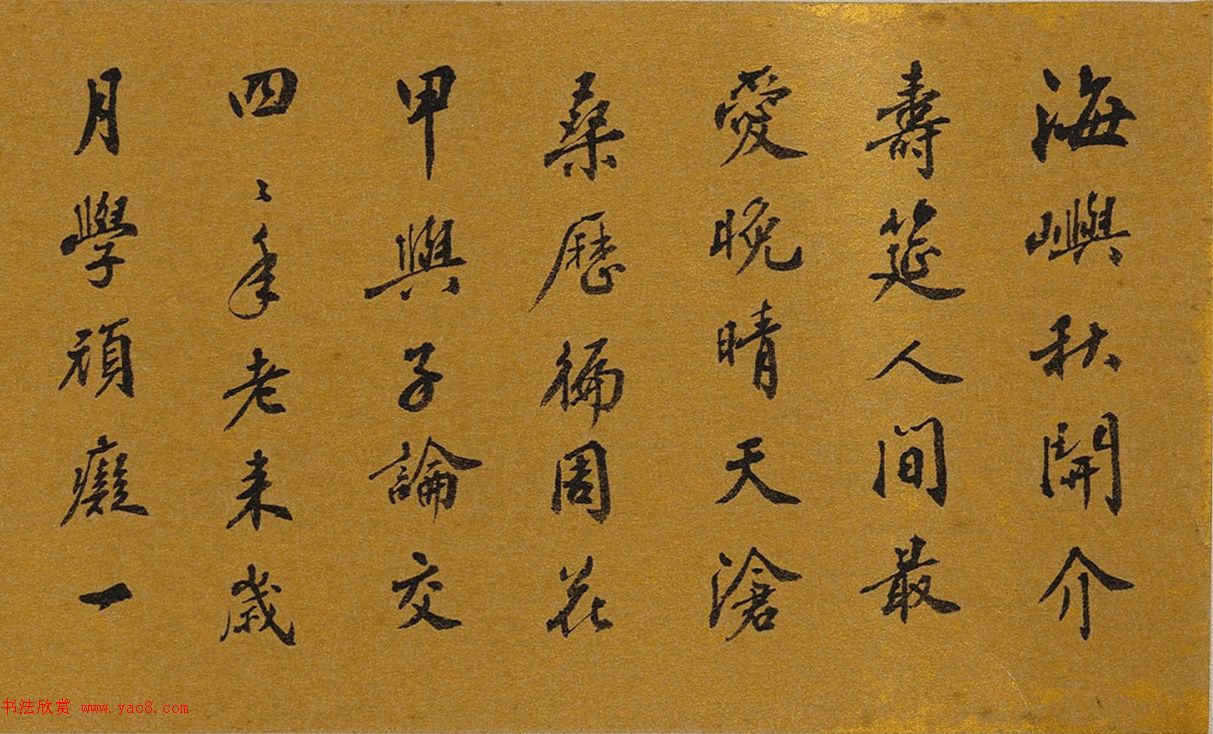 海嶼秋開介
壽筵人間最
愛晚晴天滄
桑歷徧周花
甲與子論交
四〻年老来歲
月學頑癡一
书法欣赏 www.yac8.com